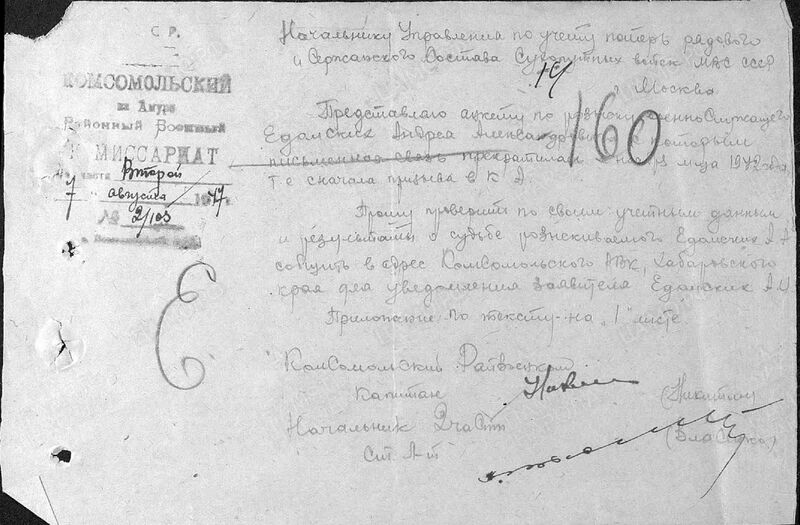 С. Р.
КОМСОМОЛЬСКИЙ
на Амуре
Районный Военный
КОМИССАРИАТ
части Второй
7 " августа 1947
№ 2/103
Начальнику Управления по учету потерь рядового
и Сержанского Состава Сухопутных войск МВС СССР
г Москва
160
Представляю анкету по розыску военнослужащего
Едамских Андрея Александровича с которым
письменная связь прекратилась с мца 1942 года
т.е сначала призыва в К А.
Прошу проверить по своим учетным данным
и результаты о судьбе розыскиваемого Едамских А А
сообщить в адрес Комсомольского РВК, Хабаровского
края для уведомления заявителя Едамских А.И
Приложение по тексту на "1" листе.
Е
Комсомольский Райвоенком
Капитан (Никитин)
Начальник 2 части
Ст. Л-т (Власенко)